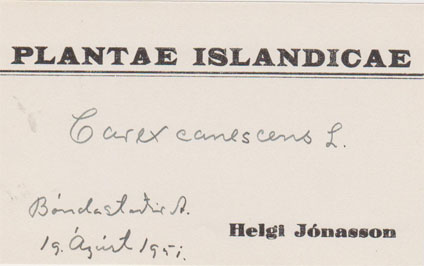 PLANTAE ISLANDICAE
Carex canescens L.
Bóndastaðir A.
19. Ágúst 1951.
Helgi Jónasson